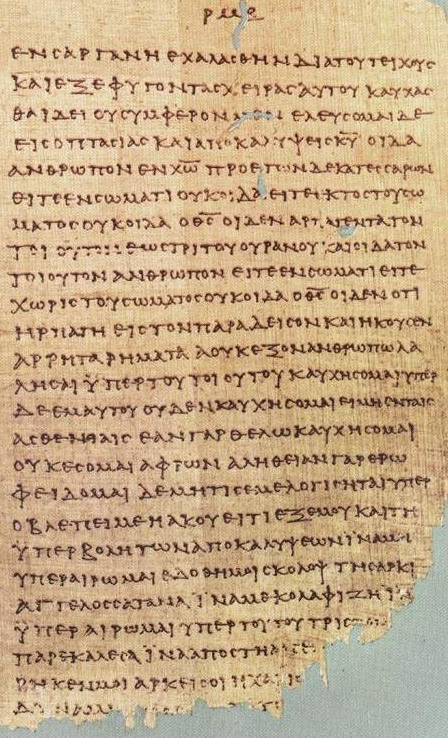 ΡΜΘ
ΕΝ ΣΑΡΓΑΝΗ ΕΧΑΛΑΣΘΗΝ ΔΙΑ ΤΟΥ ΤΕΙΧΟΥΣ
ΚΑΙ ΕΞΕΦΥΓΟΝ ΤΑΣ ΧΕΙΡΑΣ ΑΥΤΟΥ ΚΑΥΧΑΣ
ΘΑΙ ΔΕΙ ΟΥ ΣΥΜΦΕΡΟΝ ΕΛΕΥΣΟΜΑΙ ΔΕ
ΕΙΣ ΟΠΤΑΣΙΑΣ ΚΑΙ ΑΠΟΚΑΛΥΨΕΙΣ ΚΥ ΟΙΔΑ
ΑΝΘΡΩΠΟΝ ΕΝ ΧΩ ΠΡΟ ΕΤΩΝ ΔΕΚΑΤΕΣΣΑΡΩΝ
ΕΙΤΕ ΕΝ ΣΩΜΑΤΙ ΟΥΚ ΟΙΔΑ ΕΙΤΕ ΕΚΤΟΣ ΤΟΥ ΣΩ
ΜΑΤΟΣ ΟΥΚ ΟΙΔΑ Ο ΘΣ ΟΙΔΕΝ ΑΡΠΑΓΕΝΤΑ ΤΟΝ
ΤΟΙΟΥΤΟΝ ΕΩΣ ΤΡΙΤΟΥ ΟΥΡΑΝΟΥ ΚΑΙ ΟΙΔΑ ΤΟΝ
ΤΟΙΟΥΤΟΝ ΑΝΘΡΩΠΟΝ ΕΙΤΕ ΕΝ ΣΩΜΑΤΙ ΕΙΤΕ
ΧΩΡΙΣ ΤΟΥ ΣΩΜΑΤΟΣ ΟΥΚ ΟΙΔΑ Ο ΘΣ ΟΙΔΕΝ ΟΤΙ
ΗΡΠΑΓΗ ΕΙΣ ΤΟΝ ΠΑΡΑΔΕΙΣΟΝ ΚΑΙ ΗΚΟΥΣΕΝ
ΑΡΡΗΤΑ ΡΗΜΑΤΑ Α ΟΥΚ ΕΞΟΝ ΑΝΘΡΩΠΩ ΛΑ
ΛΗΣΑΙ ΫΠΕΡ ΤΟΥ ΤΟΙΟΥΤΟΥ ΚΑΥΧΗΣΟΜΑΙ ΥΠΕΡ
ΔΕ ΕΜΑΥΤΟΥ ΟΥΔΕΝ ΚΑΥΧΗΣΟΜΑΙ ΕΙ ΜΗ ΕΝ ΤΑΙΣ
ΑΣΘΕΝΕΙΑΙΣ ΕΑΝ ΓΑΡ ΘΕΛΩ ΚΑΥΧΗΣΟΜΑΙ
ΟΥΚ ΕΣΟΜΑΙ ΑΦΡΩΝ ΑΛΗΘΕΙΑΝ ΓΑΡ ΕΡΩ
ΦΕΙΔΟΜΑΙ ΔΕ ΜΗ ΤΙΣ ΕΜΕ ΛΟΓΙΣΗΤΑΙ ΥΠΕΡ
Ο ΒΛΕΠΕΙ ΜΕ Η ΑΚΟΥΕΙ ΤΙ ΕΞ ΕΜΟΥ ΚΑΙ ΤΗ
ΫΠΕΡΒΟΛΗ ΤΩΝ ΑΠΟΚΑΛΥΨΕΩΝ ΪΝΑ ΜΗ
ΥΠΕΡΑΙΡΩΜΑΙ ΕΔΟΘΗ ΜΟΙ ΣΚΟΛΟΨ ΤΗ ΣΑΡΚΙ
ΑΓΓΕΛΟΣ ΣΑΤΑΝΑ ΪΝΑ ΜΕ ΚΟΛΑΦΙΖΗ ΪΝ
ΫΠΕΡΑΙΡΩΜΑΙ ΥΠΕΡ ΤΟΥΤΟΥ ΤΡΙΣ
ΠΑΡΕΚΑΛΕΣΑ ΪΝΑ ΑΠΟΣΤΗ
ΡΗΚΕΝ ΜΟΙ ΑΡΚΕΙ ΣΟΙ Η ΧΑΡΙΣ